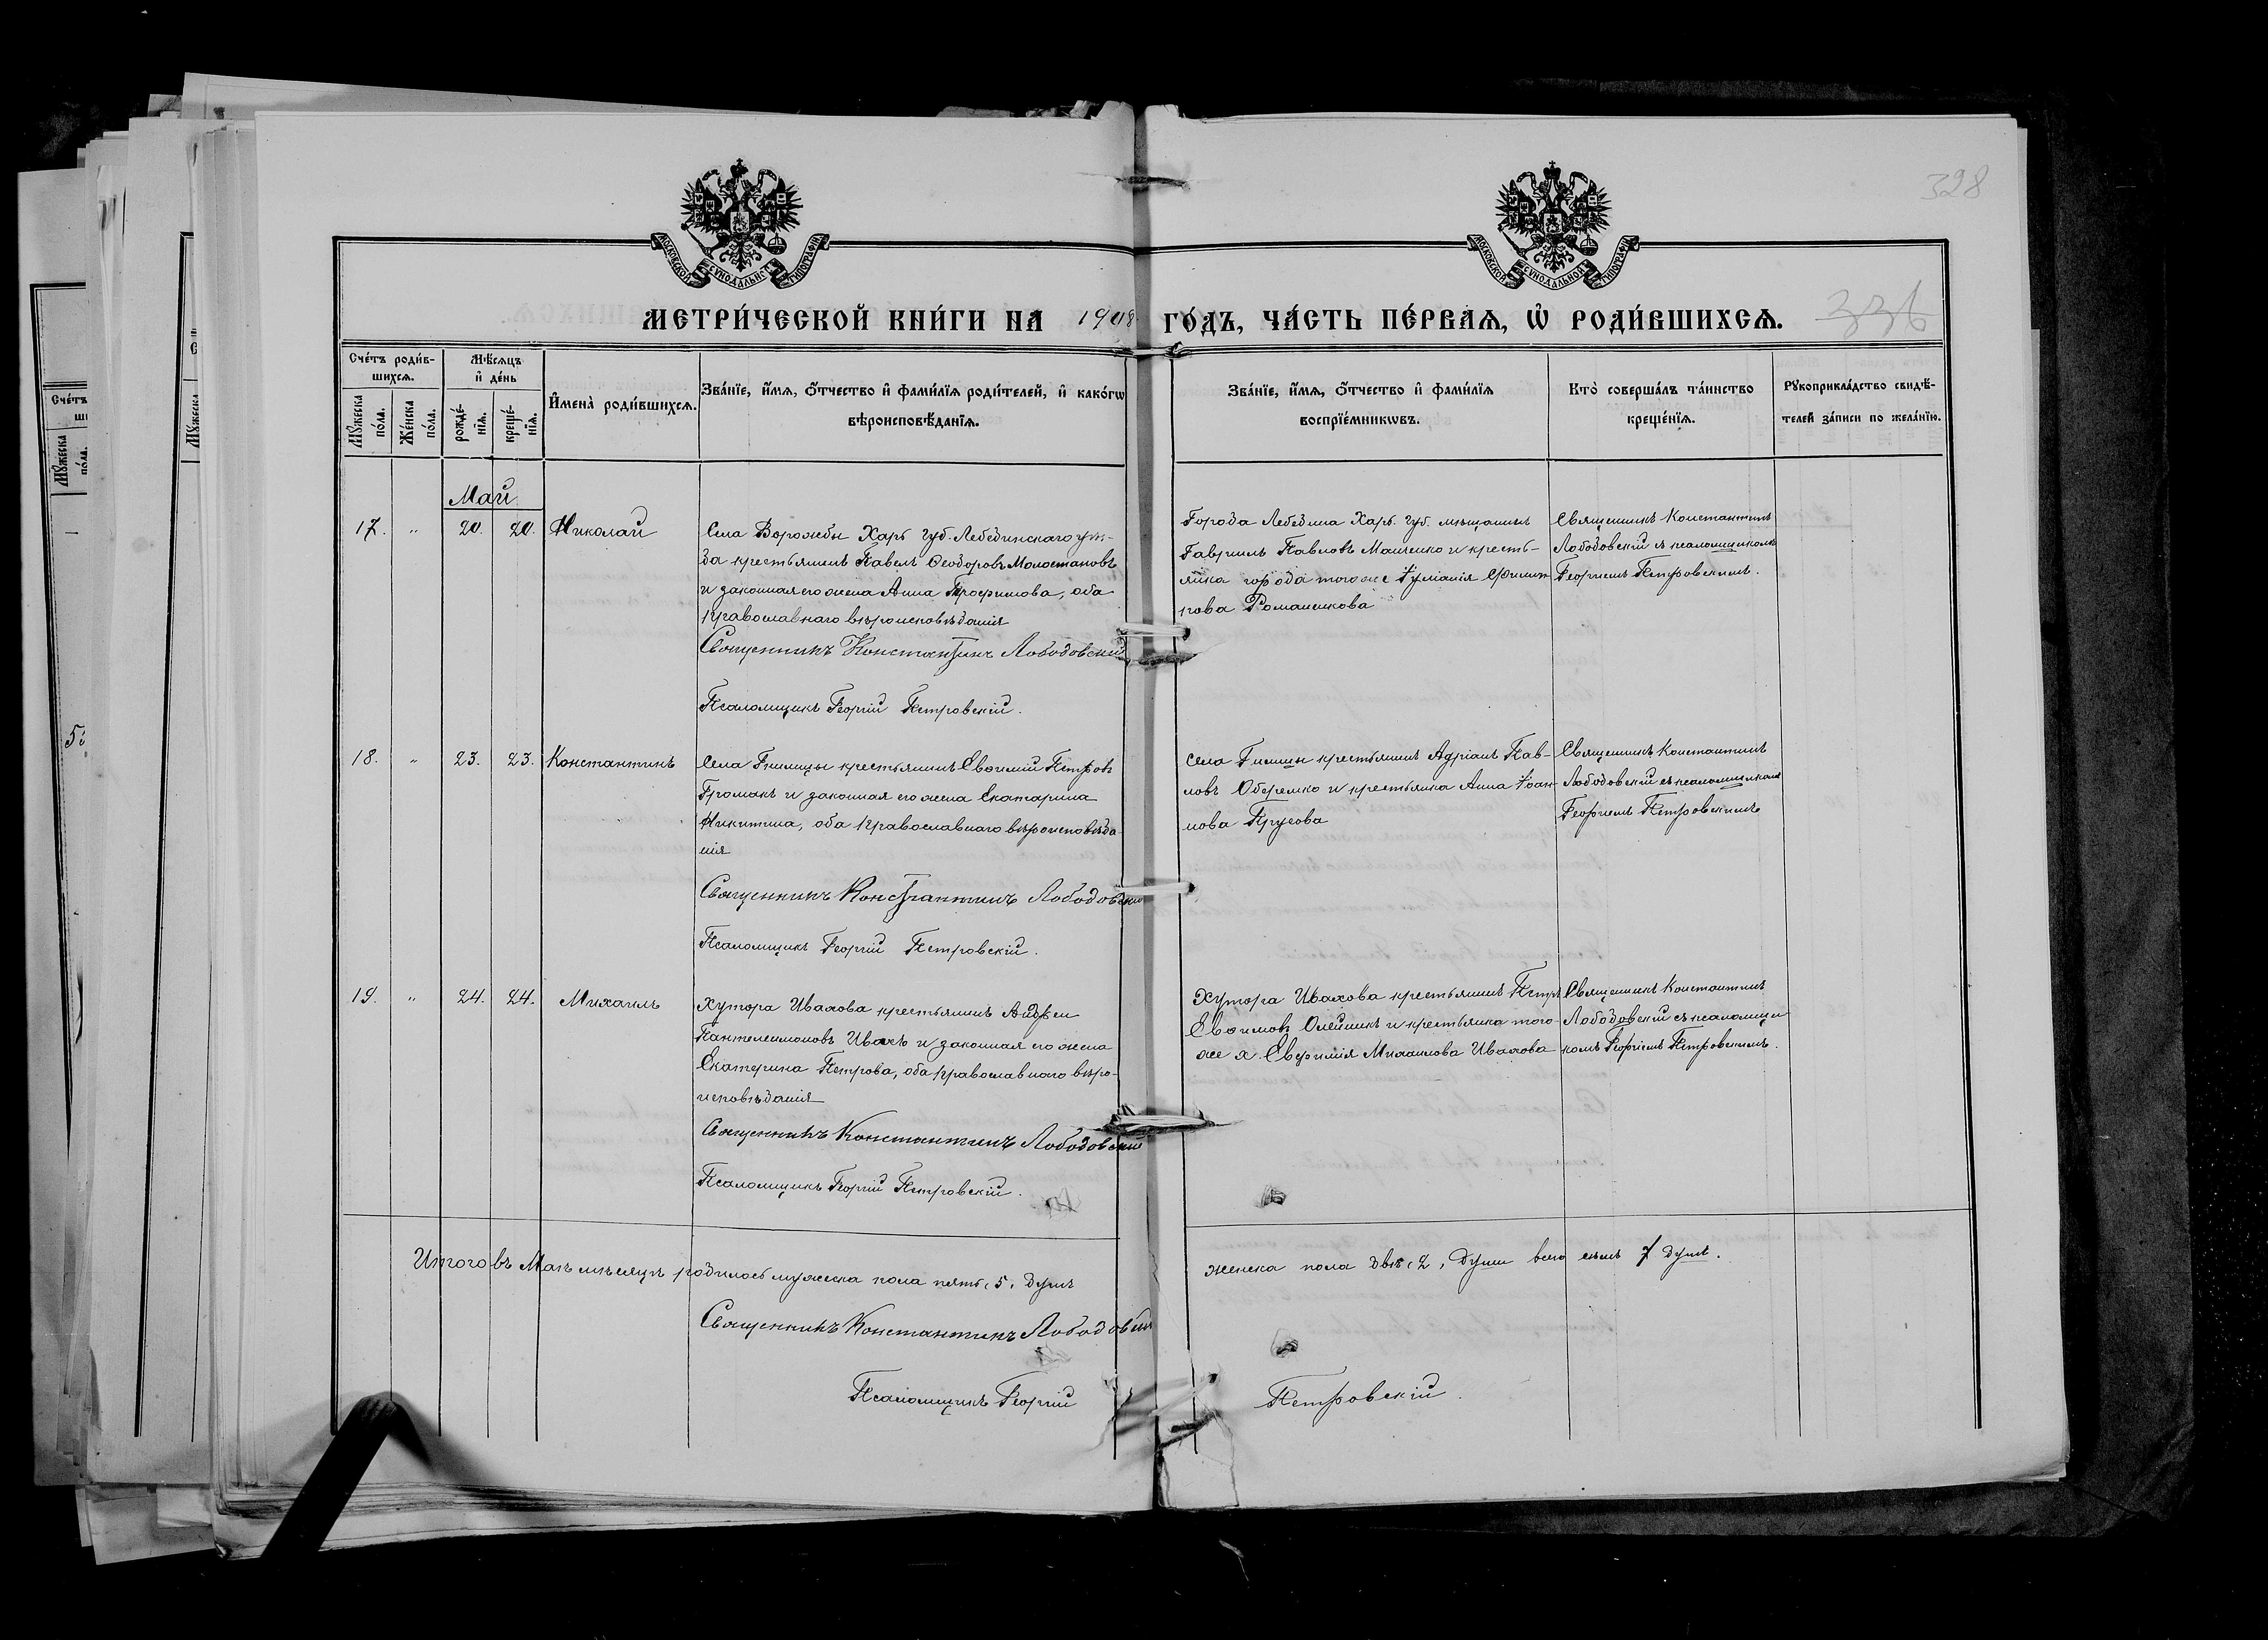 328
МОСКОВСКОЙ СѴНОДАЛЬНОЙ ТИПОГРАФІИ
МОСКОВСКОЙ СѴНОДАЛЬНОЙ ТИПОГРАФІИ
МЕТРИ́ЧЕСКОЙ КНИ́ГИ НА 1908 ГО́ДЪ, ЧА́СТЬ ПЕ́РВАЯ, Ѡ҆ РОДИ́ВШИХСѦ.
336
Сче́тъ роди́в-
шихсѧ.
Мꙋ́жеска по́ла.
Же́нска по́ла.
Мѣ́сѧцъ
и҆ де́нь
рожде́-
нїѧ.
креще́-
нїѧ.
И҆мена̀ роди́вшихсѧ.
Зва́нїе, и҆́мѧ, ѻ҆́тчество и҆ фами́лїѧ роди́телей, и҆ како́гѡ
вѣроисповѣ́данїѧ.
Зва́нїе, и҆́мѧ, ѻ҆́тчество и҆ фами́лїѧ
воспрїе́мникѡвъ.
Кто̀ соверша́лъ та́инство
креще́нїѧ.
Рꙋкоприкла́дство свидѣ́-
телей за́писи по жела́нїю.
Май
17. " 20. 20. Николай
Села Ворожбы Харь. Губ. Лебединскаго уѣз-
да крестьянинъ Павелъ Ѳеодоровъ Молостановъ
и законная его жена Анна Трофимова, оба
православнаго вѣроисповѣданія
Священникъ Константинъ Лободовскій
Псаломщикъ Георгій Петровскій.
Города Лебедина Харь. Губ. мѣщанинъ
Гавріилъ Павловъ Машенко и кресть-
янка города того же Іуліанія
Романенкова
Священникъ Константинъ
Лободовскій съ псаломщикомъ
Георгіемъ Петровскимъ.
18. " 23. 23. Константинъ
Села Гнилицы крестьянинъ Евѳимій Петровъ
Громакъ и законная его жена Екатарина
Никитина, оба православнаго вѣроисповѣда-
нія
Священникъ Константинъ Лободовскій
Псаломщикъ Георгій Петровскій.
Села крестьянинъ Адріанъ Пав-
ловъ Оберемко и крестьянка Анна Іоан-
нова Прусова
Священникъ Константинъ
Лободовскій съ псаломщикомъ
Георгіемъ Петровскимъ
19. " 24. 24. Михаилъ
Хутора Ивахова крестьянинъ Андрей
Пантелеимоновъ Ивахъ и законная его жена
Екатерина Петрова, оба православнаго вѣро-
исповѣданія
Священникъ Константинъ Лободовскій
Псаломщикъ Георгій Петровскій.
Хутора Ивахова крестьянинъ Петръ
Евѳимовъ Олейникъ и крестьянка того-
же х. Евфимія Михаилова Ивахова
Священникъ Константинъ
Лободовскій съ псаломщи
комъ Георгіемъ Петровскимъ.
Итого въ Маѣ мѣсяцѣ родилось мужеска пола пять, 5, душъ
женска пола двѣ, 2, души всего семь 7 душъ.
Священникъ Константинъ Лободовскій
Псаломщикъ Георгій Петровскій.